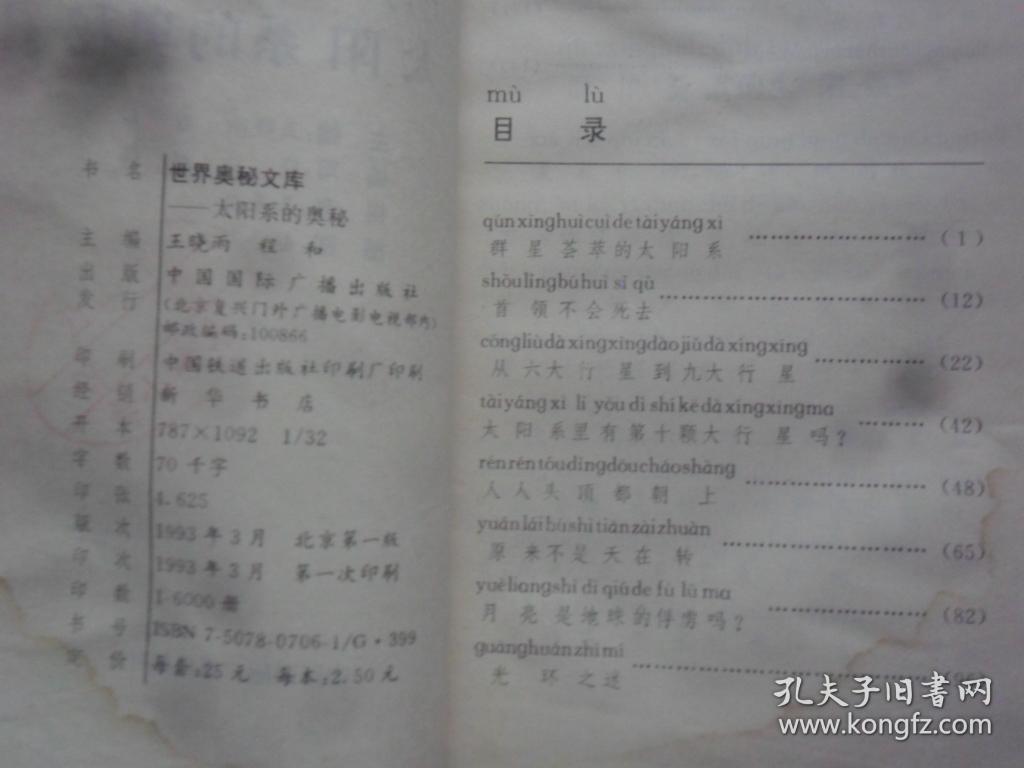 书名 世界奥秘文库
——太阳系的奥秘
主编 王晓雨 程和
出版 中国国际广播出版社
发行 (北京复兴门外广播电影电视部内)
邮政编码:100866
印刷 中国铁道出版社印刷厂印刷
经销 新华书店
开本 787×1092 1/32
字数 70千字
印张 4.625
版次 1993年3月 北京第一版
印次 1993年3月 第一次印刷
印数 1-6000册
书号 ISBN 7-5078-0706-1/G·399
定价 每套:25元 每本:2.50元
mù lù
目 录
qúnxīnghuìcuìdetàiyángxì
群星荟萃的太阳系 ……………………(1)
shǒulǐngbúhuì sǐ qù
首领不会死去 ……………………(12)
cóngliùdàxíngxīngdàojiǔdàxíngxīng
从六大行星到九大行星 ……………(22)
tàiyángxì lǐ yǒu dì shí kē dà xíngxīngma
太阳系里有第十颗大行星吗? ………(42)
rénréntóudǐngdōucháoshàng
人人头顶都朝上 ……………………(48)
yuánláibúshìtiānzàizhuàn
原来不是天在转 ……………………(65)
yuèliangshì dì qiú de fú lǔ ma
月亮是地球的俘虏吗? ………………(82)
guānghuánzhīmí
光环之迷 ……………………
孔夫子旧书网
www.kongfz.com